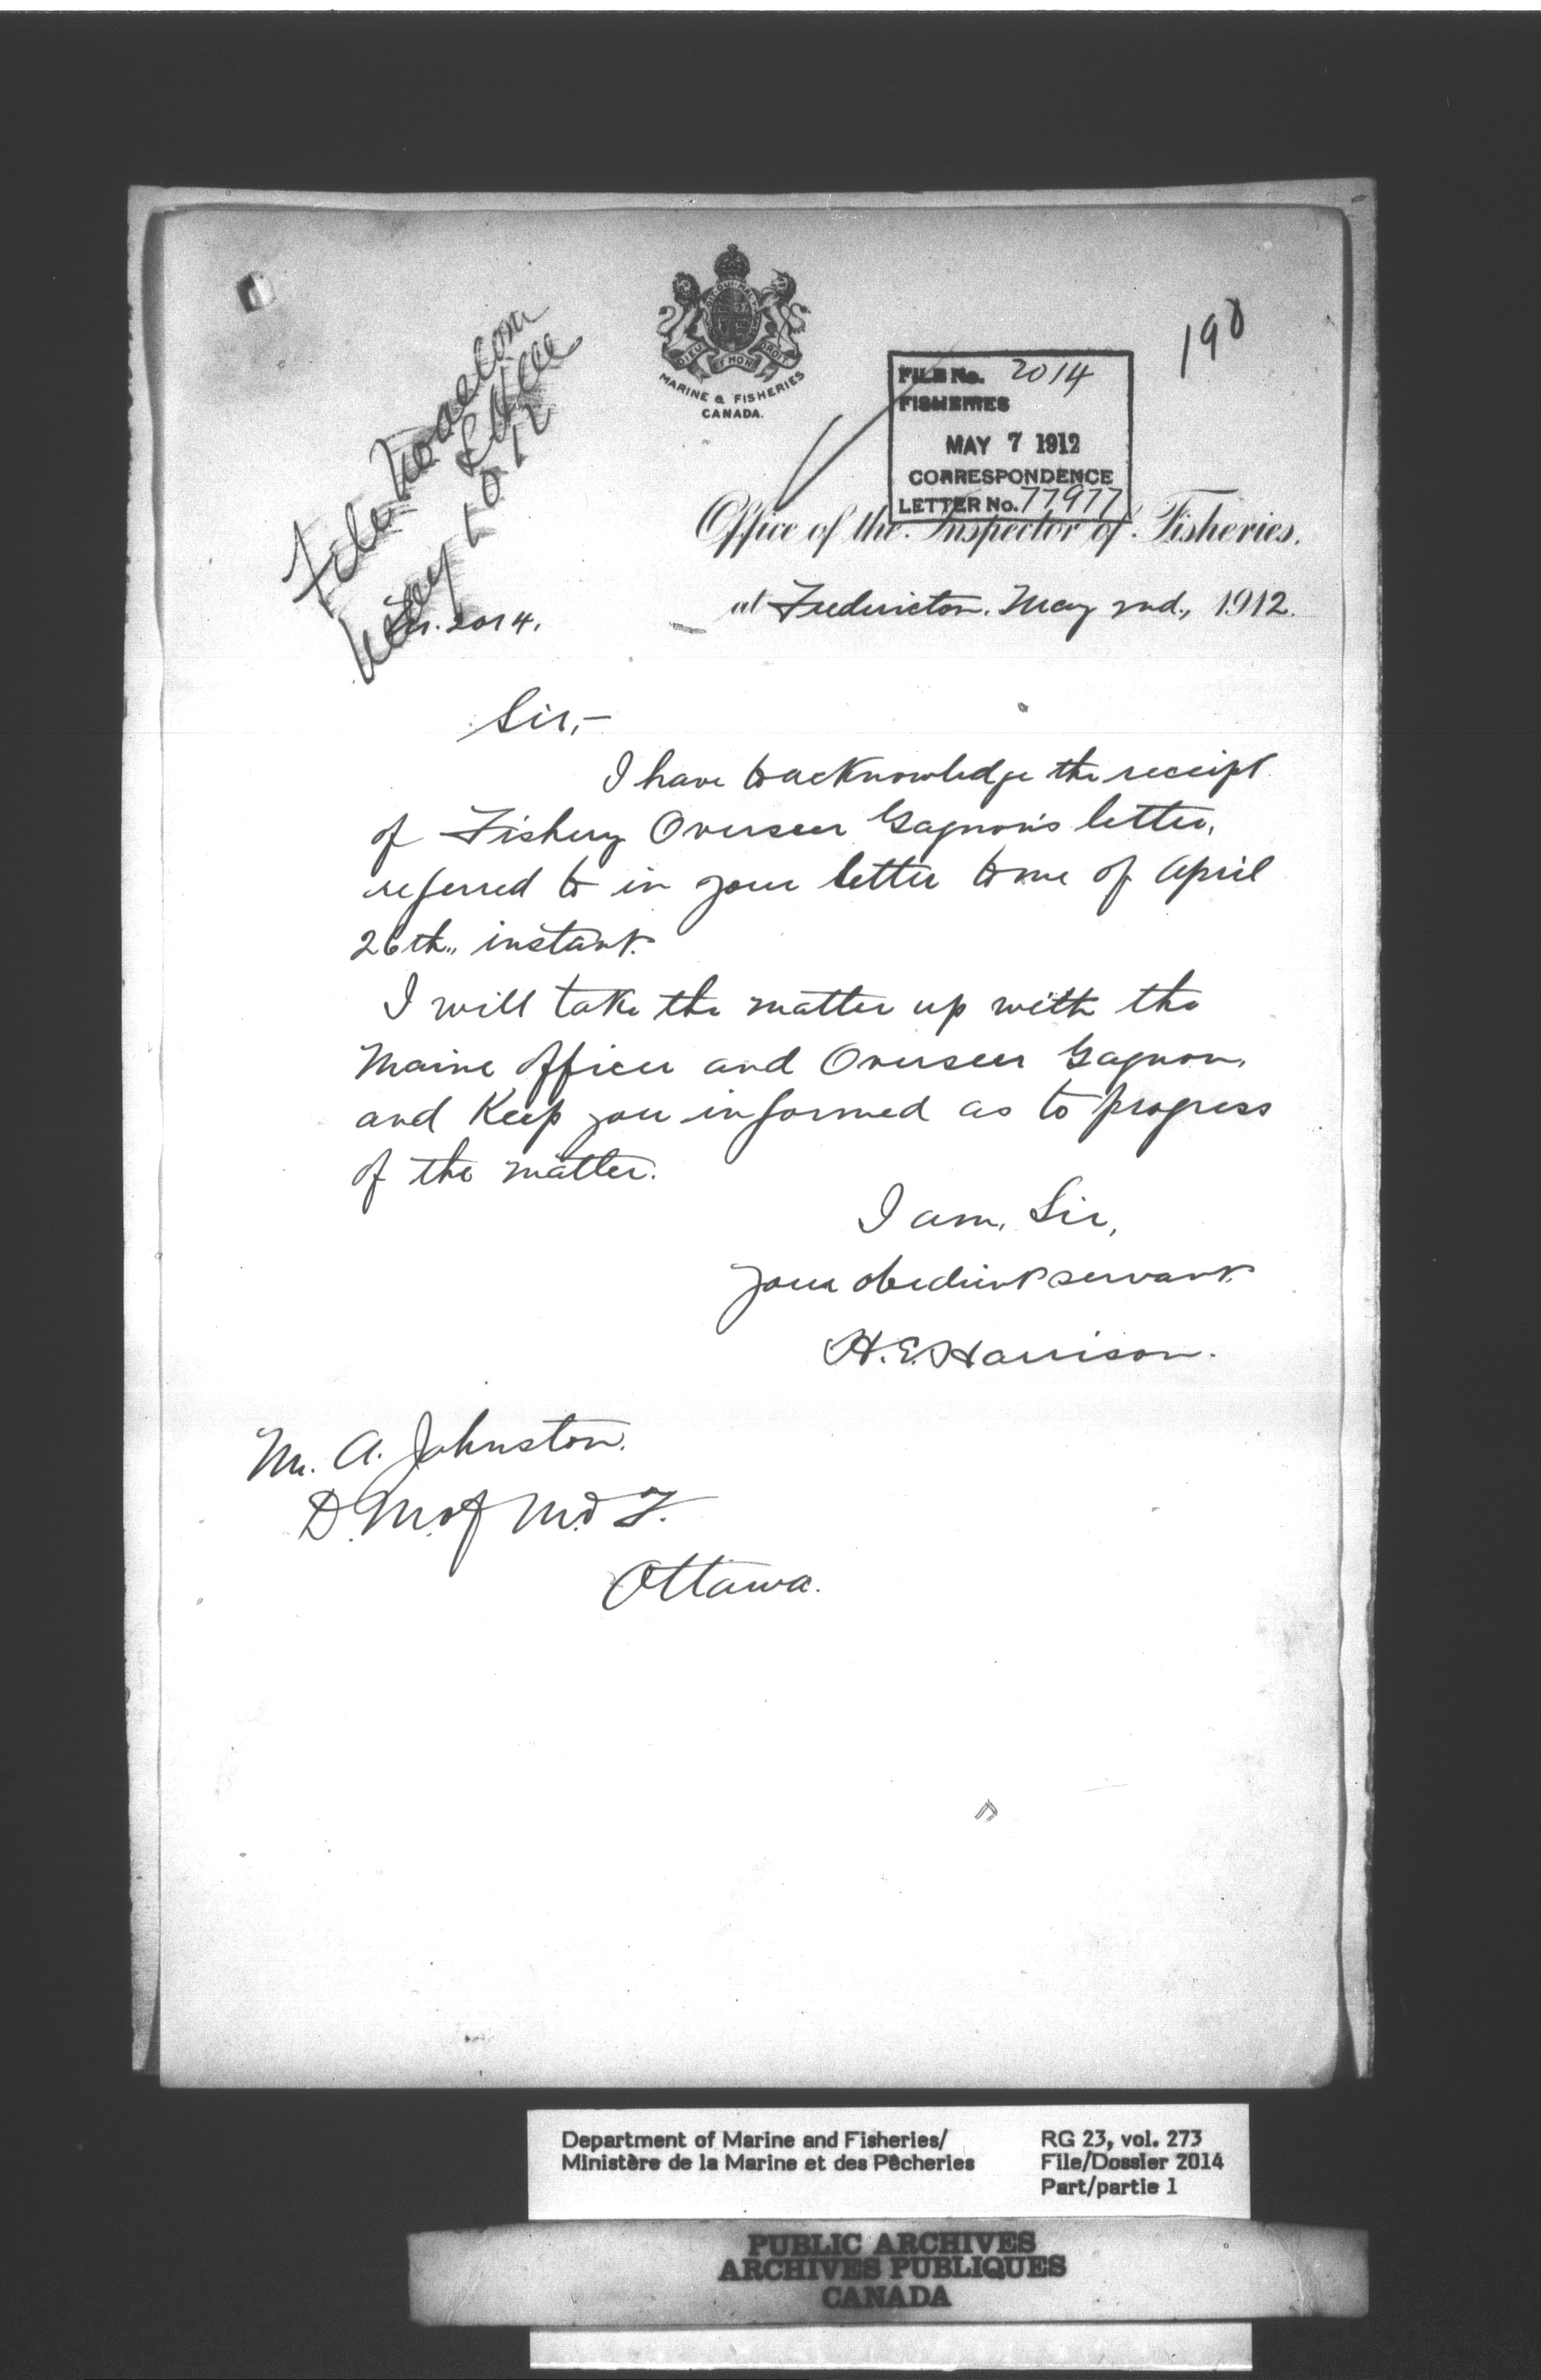 190
DIEU ET MON DROIT
MARINE & FISHERIES
CANADA.
FILE No. 2014
FISHERIES
MAY 7 1912
CORRESPONDENCE
LETTER No. 77977
Office of the Inspector of Fisheries.
at Fredericton. May 2nd., 1912.
File
May 10-12
2014.
Sir,-
I have to acknowledge the receipt
of Fishery Overseer Gagnon's letter,
referred to in your letter to me of April
26th,, instant.
I will take the matter up with the
Maine officer and Overseer Gagnon,
and Keep you informed as to progress
of the matter.
I am, Sir,
your obedient servant.
H.E. Harrison.
Mr. A. Johnston.
D.M. of M. & F.
Ottawa.
Department of Marine and Fisheries/
Ministère de la Marine et des Pêcheries
RG 23, vol. 273
File/Dossier 2014
Part/partie 1
PUBLIC ARCHIVES
ARCHIVES PUBLIQUES
CANADA